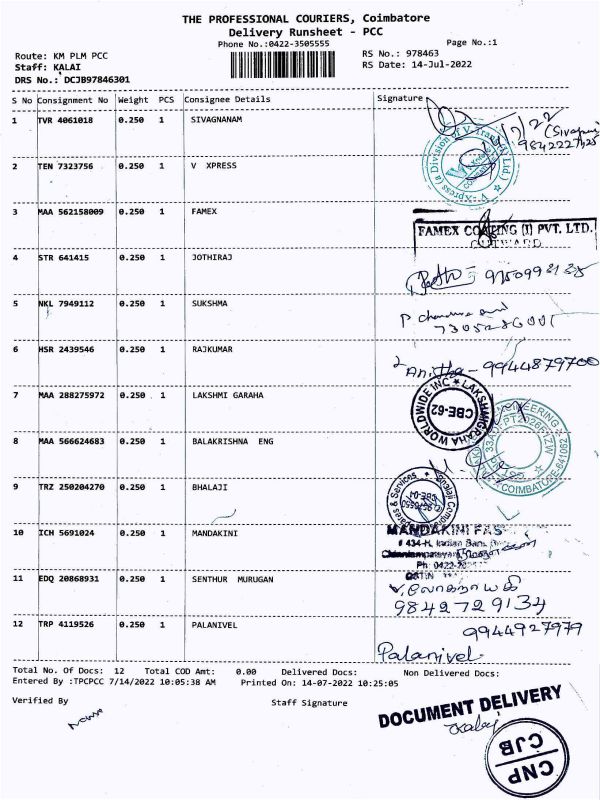 THE PROFESSIONAL COURIERS, Coimbatore
Delivery Runsheet - PCC
Phone No.:0422-3505555
Page No.:1
Route: KM PLM PCC
RS No.: 978463
Staff: KALAI
RS Date: 14-Jul-2022
DRS No.: DCJB97846301
S No Consignment No Weight PCS Consignee Details Signature
1 TVR 4061018 0.250 1 SIVAGNANAM
2 TEN 7323756 0.250 1 V XPRESS
V-Xpress (a Division of V-Trans Ltd.)
3 MAA 562158009 0.250 1 FAMEX
FAMEX COATING (I) PVT. LTD.
4 STR 641415 0.250 1 JOTHIRAJ
5 NKL 7949112 0.250 1 SUKSHMA
6 HSR 2439546 0.250 1 RAJKUMAR
9944879700
7 MAA 288275972 0.250 1 LAKSHMI GARAHA
LAKSHMIGRAHA WORLDWIDE INC
CBE-62
8 MAA 566624683 0.250 1 BALAKRISHNA ENG
COIMBATORE-641062
9 TRZ 250204270 0.250 1 BHALAJI
10 ICH 5691024 0.250 1 MANDAKINI
MANDAKINI FAS
11 EDQ 20868931 0.250 1 SENTHUR MURUGAN
9842729134
12 TRP 4119526 0.250 1 PALANIVEL
9944927979
Palanivel
Total No. Of Docs: 12 Total COD Amt: 0.00 Delivered Docs: Non Delivered Docs:
Entered By :TPCPCC 7/14/2022 10:05:38 AM Printed On: 14-07-2022 10:25:05
Verified By
Staff Signature
DOCUMENT DELIVERY
Kalai
CNP
CJB